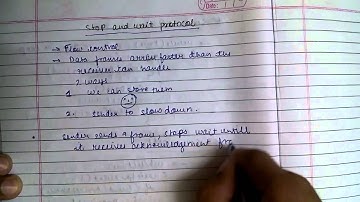 stop and wait protocol
→ Flow control
→ Data frames arrive faster than the
receiver can handle
2 ways
1 we can store them
2. sender to slow down.
• Sender sends a frame, stops wait untill
it receives acknowledgement fr
Date: